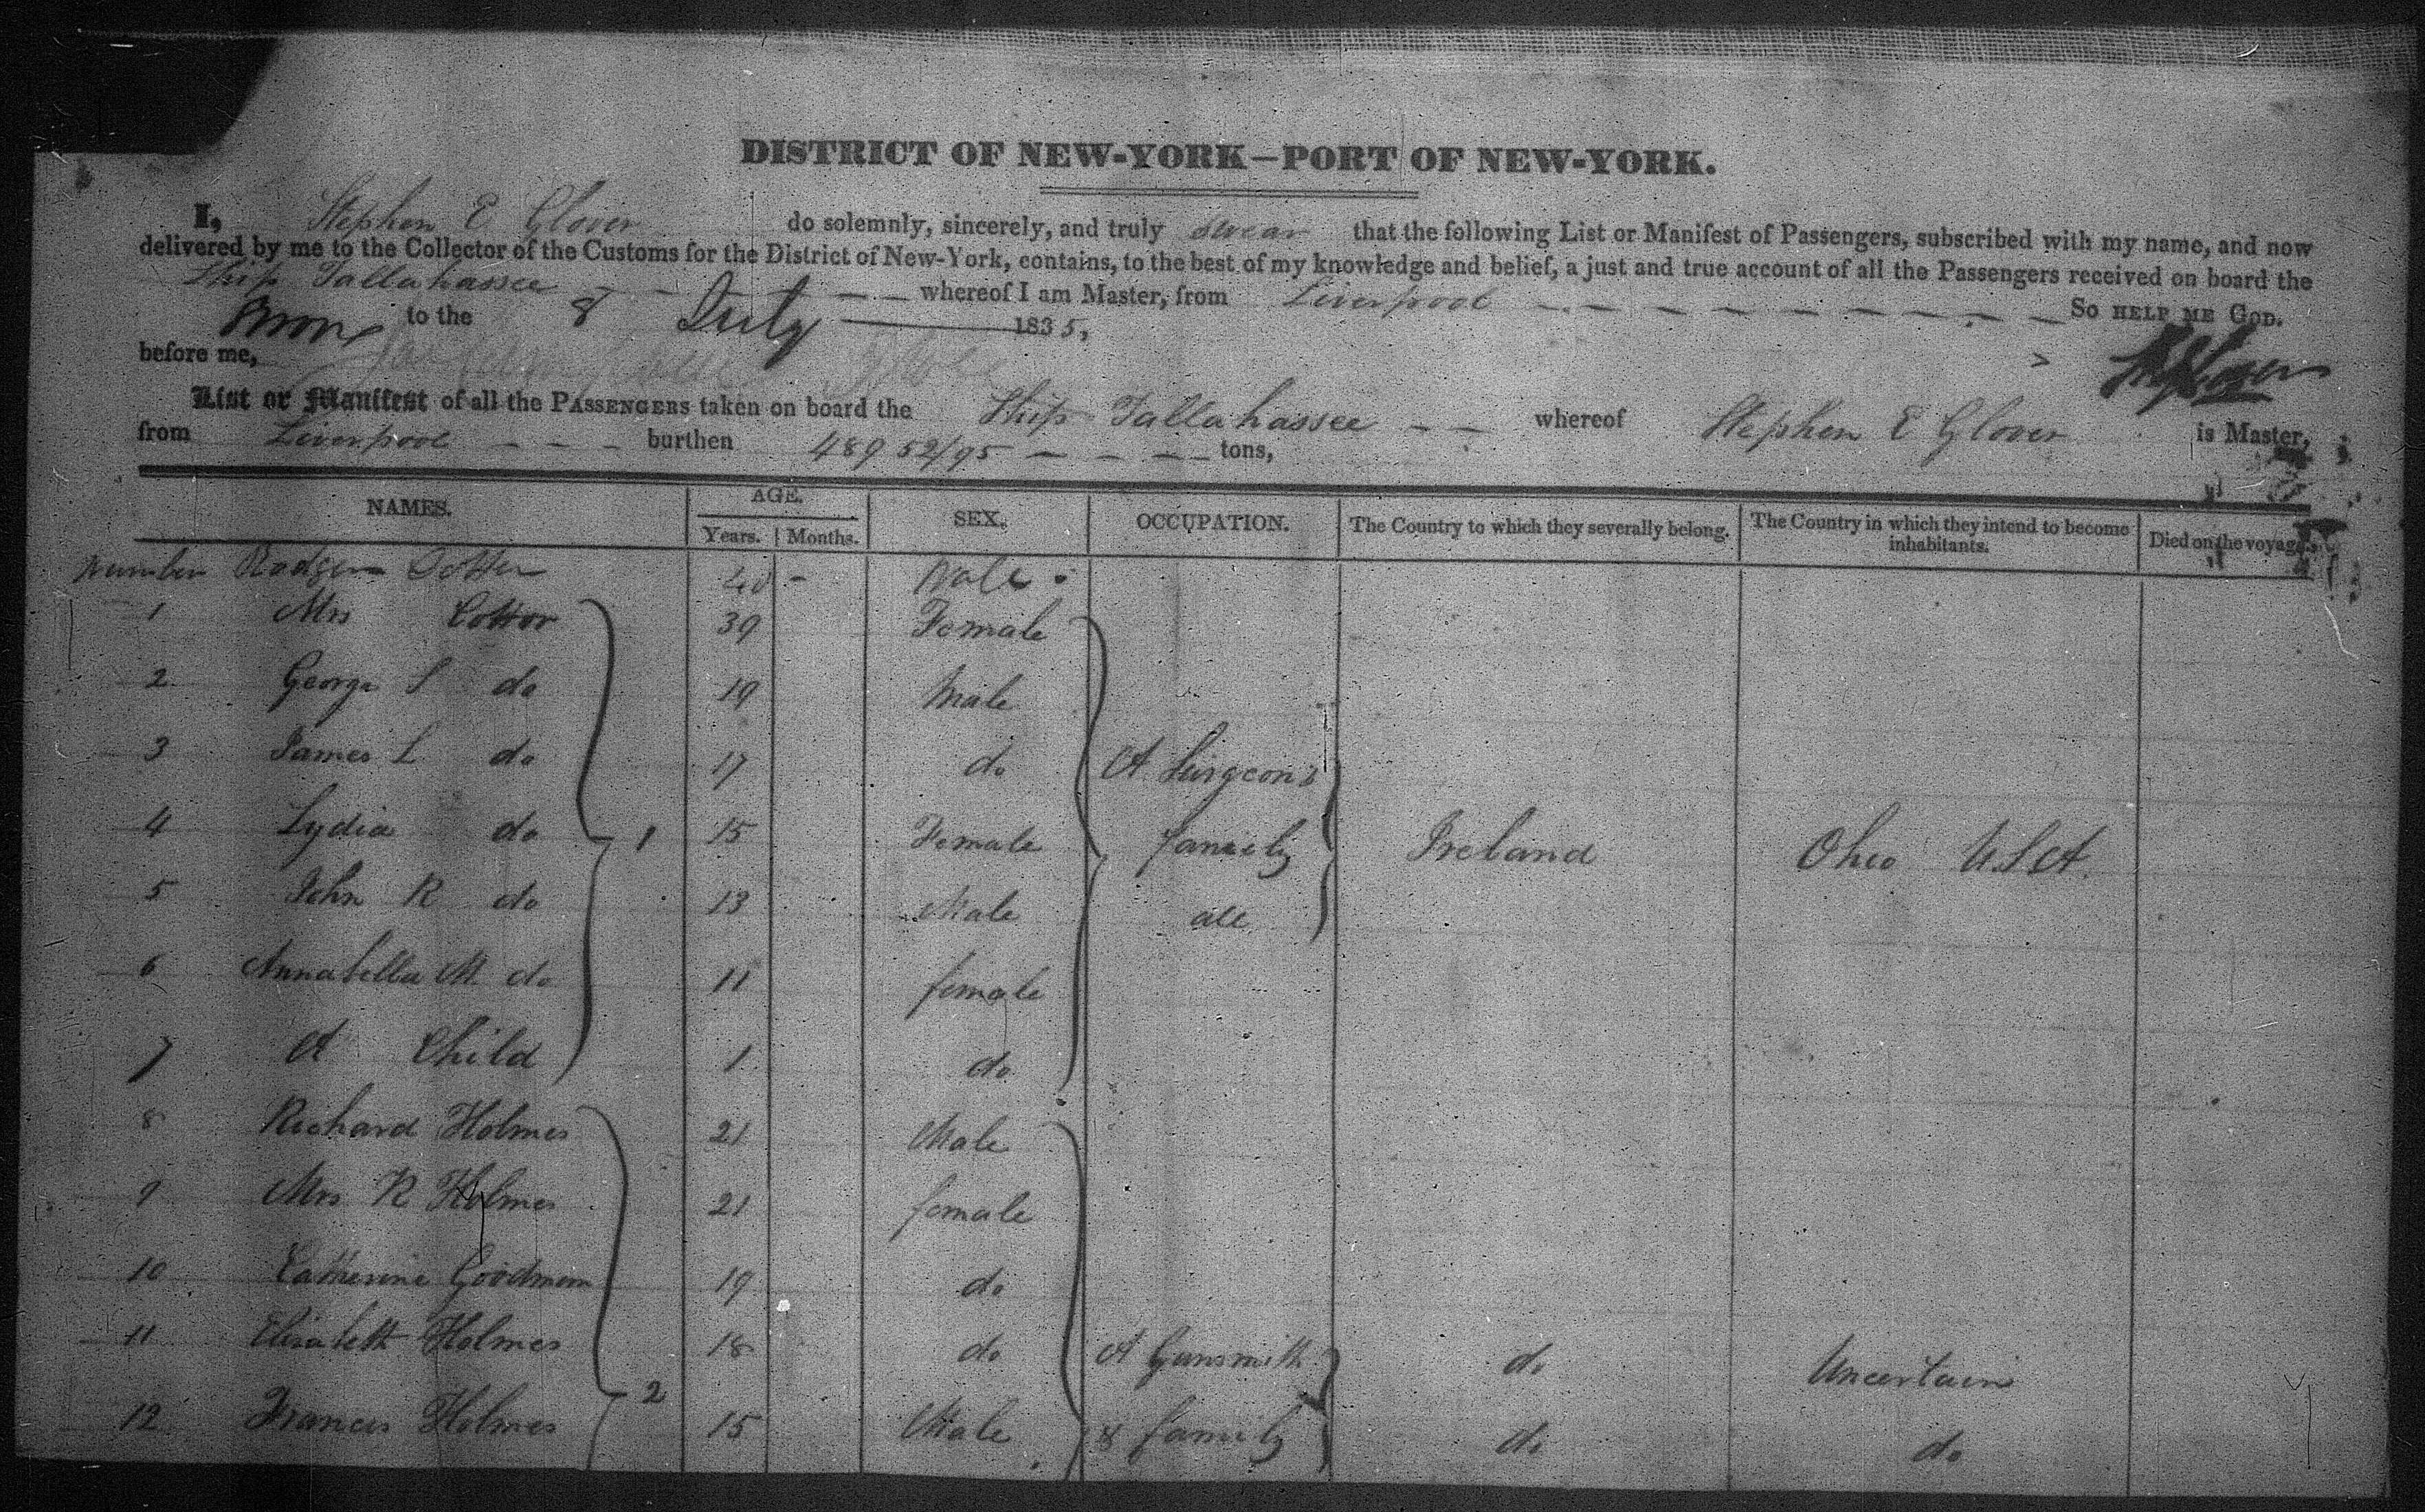 DISTRICT OF NEW-YORK—PORT OF NEW-YORK.
I, Stephen E Glover do solemnly, sincerely, and truly swear that the following List or Manifest of Passengers, subscribed with my name, and now
delivered by me to the Collector of the Customs for the District of New-York, contains, to the best of my knowledge and belief, a just and true account of all the Passengers received on board the
Ship Tallahassee — — — — whereof I am Master, from Liverpool — — — — — — — — So HELP ME GOD.
Sworn to the 8 July 1835,
before me,
List or Manifest of all the PASSENGERS taken on board the Ship Tallahassee — — whereof Stephen E Glover is Master,
from Liverpool — — — burthen 489 52/95 — — — — tons,
NAMES. AGE. Years. Months. SEX. OCCUPATION. The Country to which they severally belong. The Country in which they intend to become inhabitants. Died on the voyage.
number Rodger Cotter 40 - Male
1 Mrs Cottor 39 Female
2 George S do 19 Male
3 James L do 17 do A Surgeon's
4 Lydia do 1 15 Female family Ireland Ohio U.S.A.
5 John R do 13 Male all
6 Annabella M. do 11 female
7 A Child 1 do
8 Richard Holmes 21 Male
9 Mrs R Holmes 21 female
10 Catherine Goodman 19 do
11 Elisabeth Holmes 18 do A Gunsmith do Uncertain
12 Francis Holmes 2 15 Male & family do do